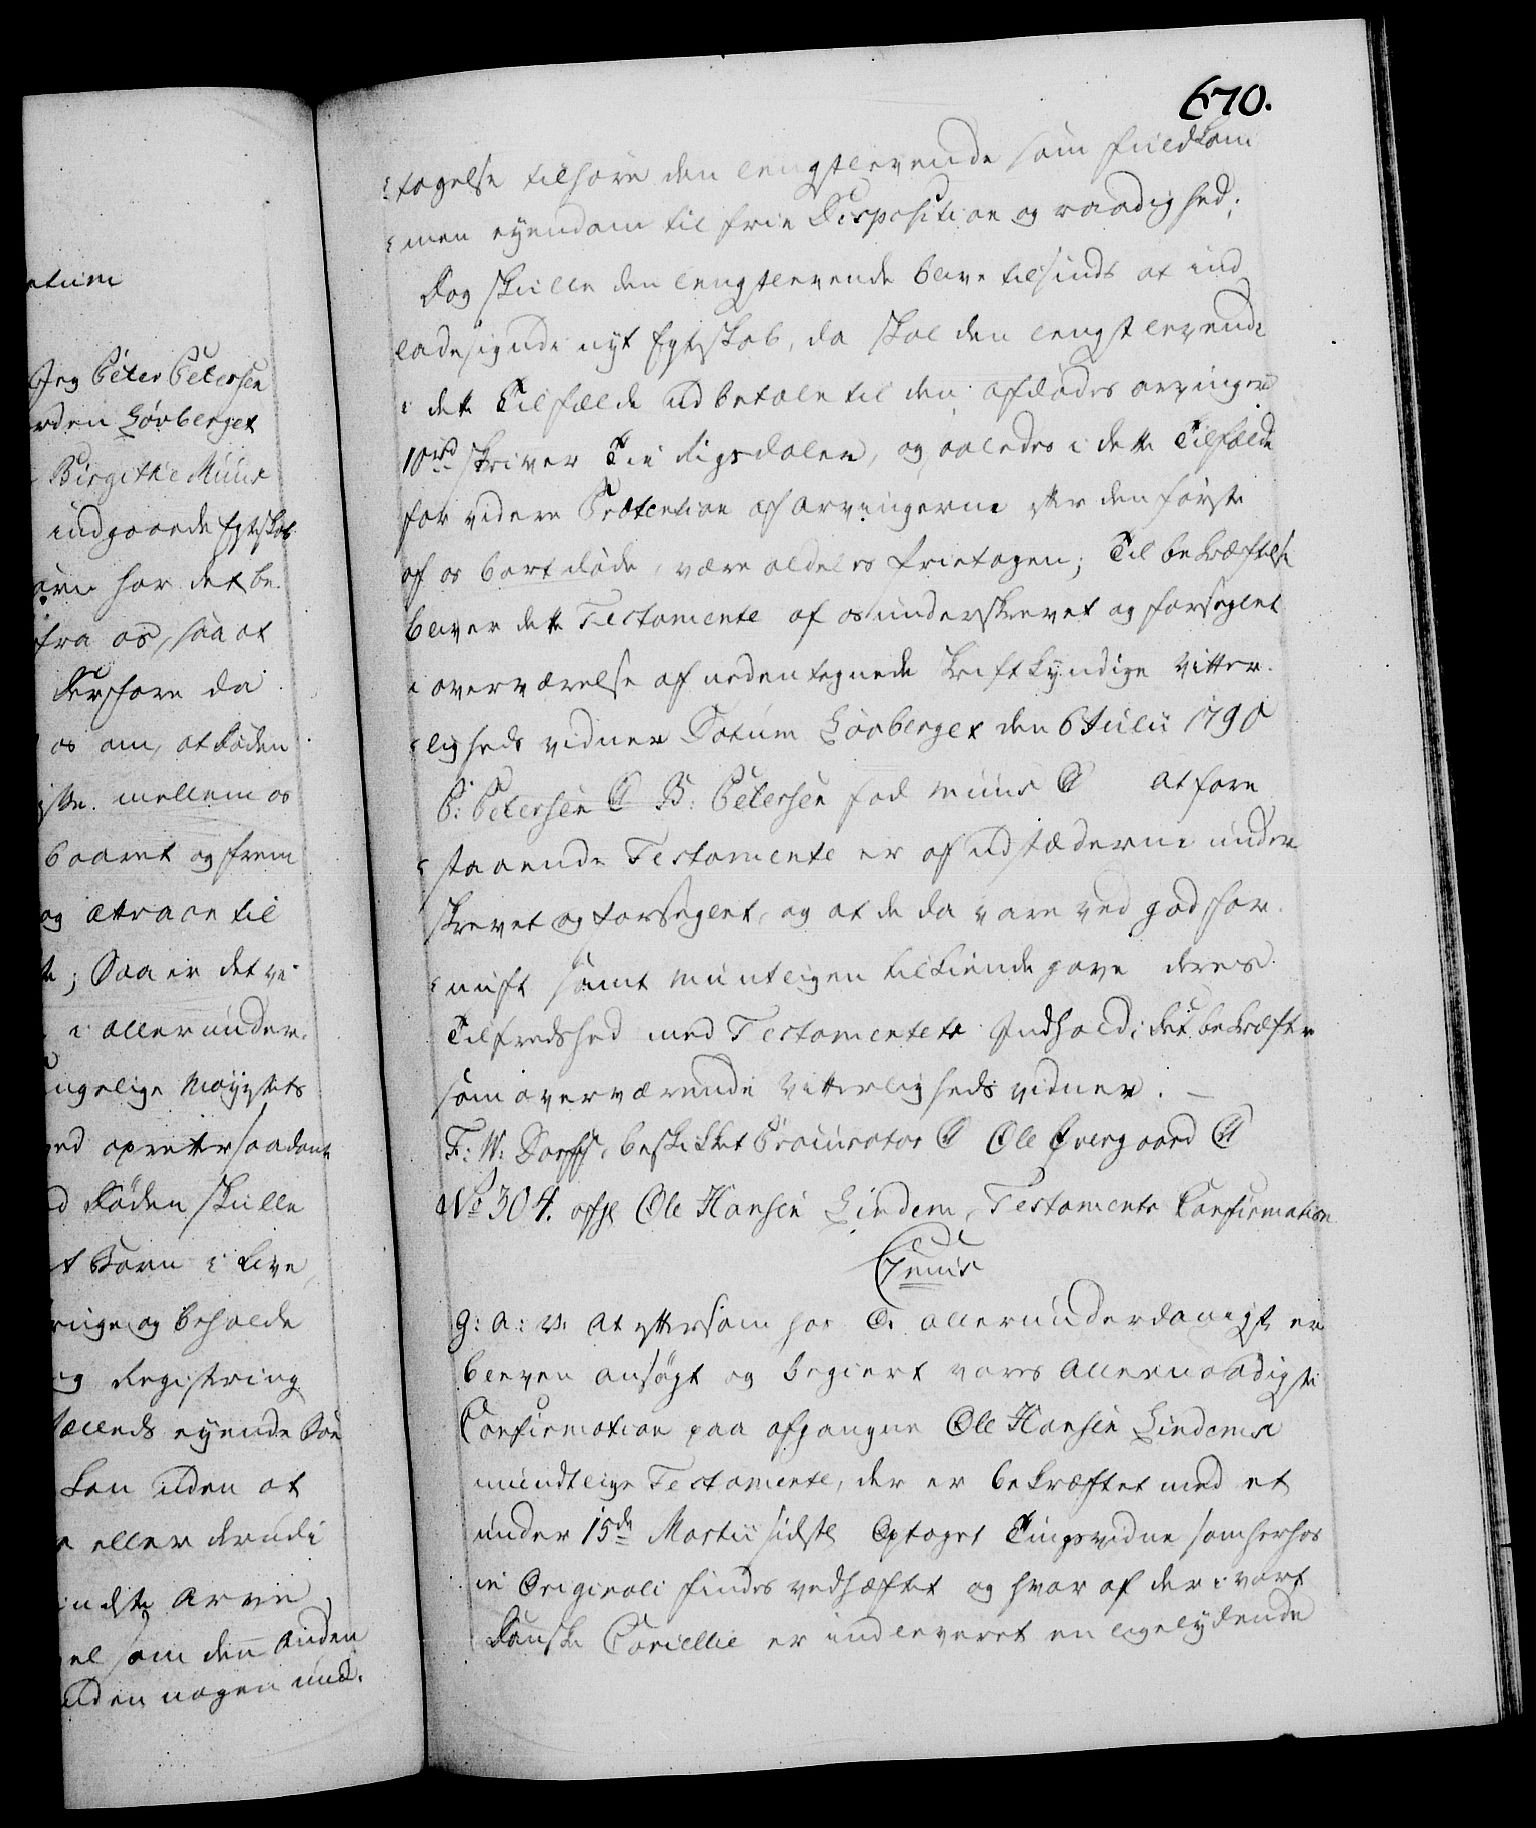 670.
:tagelse tilhøre den lengstlevende som fuldkom
:men eyendom til frie Disposition og raadighed;
Dog skulle den lengstlevende blive tilsinds at ind
lade sig udi nyt Egteskab, da skal den lengstlevende
i dette Tilfælde udbetale til den afdødes arvinger
10 rd skriver Tie Rigsdaler, og saaledes i dette Tilfælde
for videre Prætention af arvingerne efter den første
af os bortdøde, være aldeles frietagen; Til bekræftelse
bliver dette Testamente af os underskrevet og forseglet
i overværelse af nedentegnede skriftkyndige Vitter
:ligheds vidner Datum Løvberget den 6 Julii 1790
P: Petersen B: Petersen fød Muus at fore
:staaende Testamente er af udstæderne under
skrevet og forseglet, og at de da vare ved god for
:nuft samt mundtligen tilkiende gave deres
Tilfredshed med Testamentets Indhold; det bekræfte
som overværende Vitterligheds vidner. –
F: W: beskikket Procurator Ole Overgaard
No 304. afg: Ole Hansen Lindem, Testaments Confirmation
Genus
G: A: V: At eftersom hos Os allerunderdanigst er
bleven ansøgt og begiert vores Allernaadigste
Confirmation paa afgangne Ole Hansen Lindems
mundtlige Testamente, der er bekræftet med et
under 15de Martii sidste Optaget Tingsvidne som herhos
in Originali findes vedhæftet og hvor af der i vort
Danske Cancellie er indleveret en ligelydende
etum
Jeg Peter Petersen
Løvberget
Birgithe Muus
indgaaede Egteskab
har det be
fra os, saa at
Dersfore da
os om, at Døden
mellem os
baaret og frem
og attraae til
; Saa er det vi
i allerunder
Mayestets
opretter saadant
Døden skulle
Børn i Live,
og beholde
Registring
eyende Boe
kan uden at
eller derudi
Arve
som den Anden
uden nogen und: